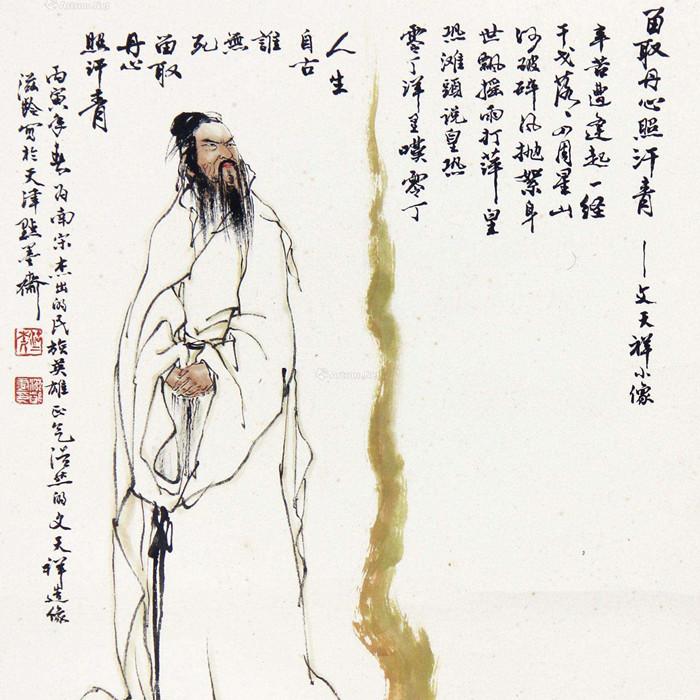 留取丹心照汗青 — 文天祥小像
辛苦遭逢起一经
干戈落〻四周星山
河破碎风抛絮身
世飘摇雨打萍皇
恐滩頭说皇恐
零丁洋里嘆零丁
人生
自古
誰
無
死
留取
丹心
照汗青
丙寅年春为南宋杰出的民族英雄正气浩然的文天祥造像
滋龄写於天津點墨齋
Artron.Net
Artron.Net